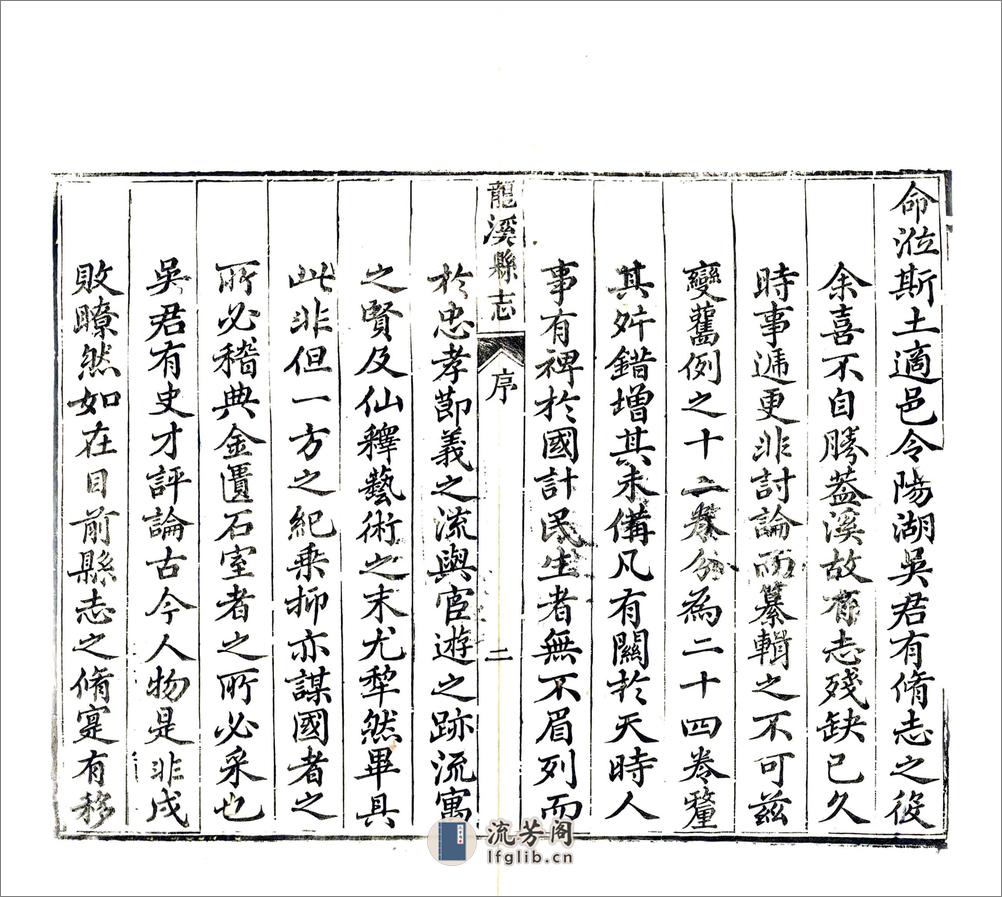 命涖斯土適邑令陽湖吳君有脩志之役
余喜不自勝葢溪故有志殘缺已久
時事遞更非討論而纂輯之不可兹
變舊例之十二卷分為二十四卷釐
其舛錯增其未備凡有關於天時人
事有裨於國計民生者無不眉列而
龍溪縣志
序
二
於忠孝節義之流與宦遊之跡流寓
之賢及仙釋藝術之末尤犂然畢具
此非但一方之紀乗抑亦謀國者之
所必稽典金匱石室者之所必采也
吳君有史才評論古今人物是非成
敗瞭然如在目前縣志之脩寔有移
流芳阁
lfglib.cn